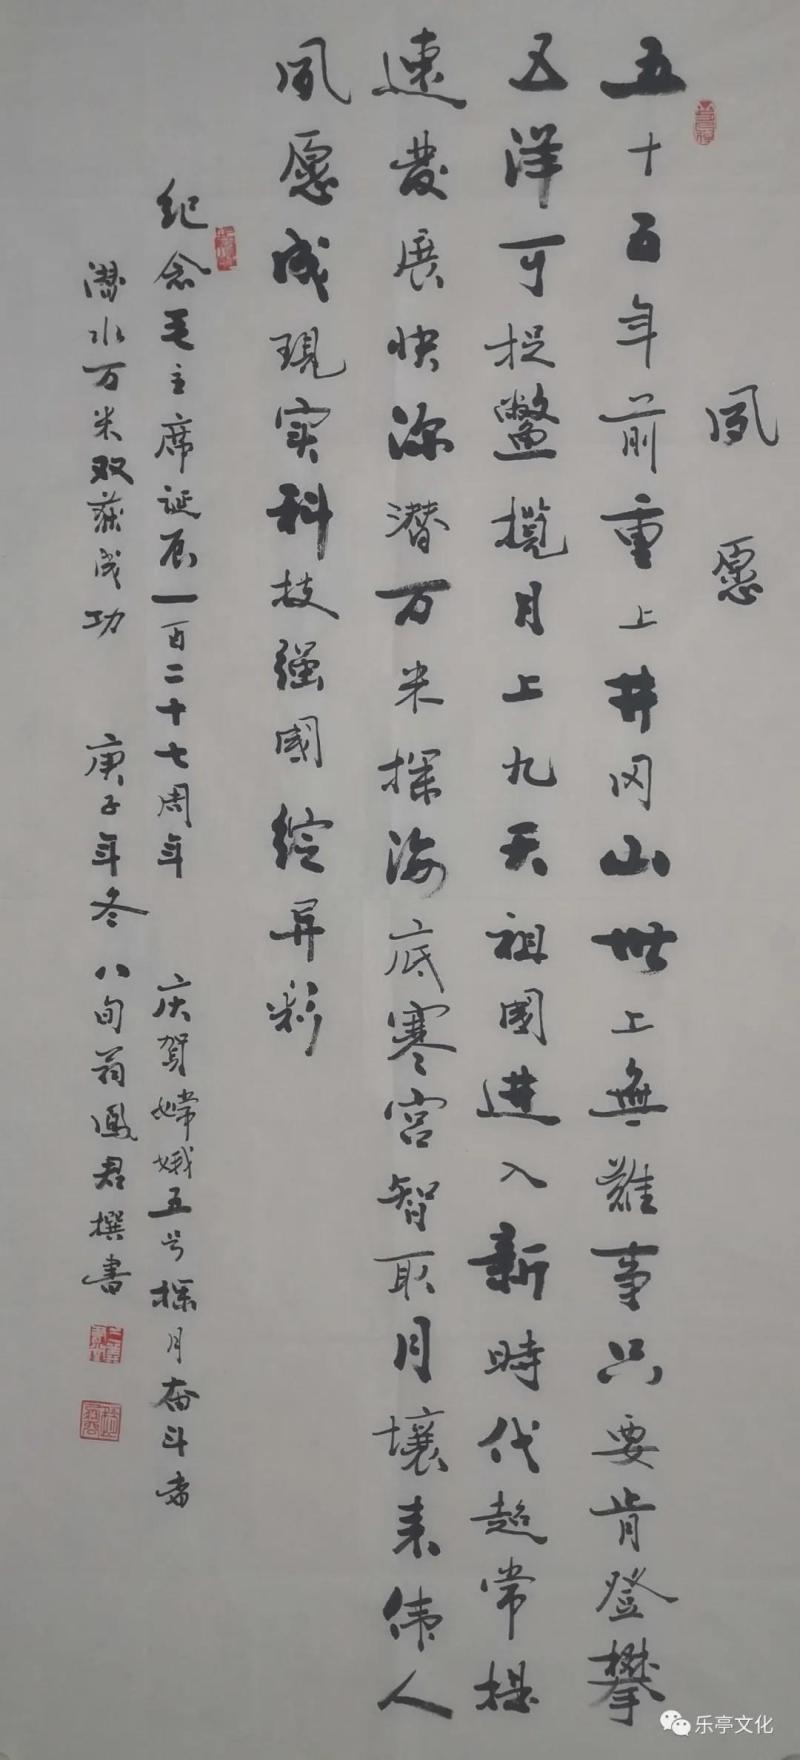 夙愿
五十五年前重上井冈山世上無难事只要肯登攀
五洋可捉鳖揽月上九天祖國进入新時代超常提
速发展快深潜万米探海底寒宫智取月壤来伟人
夙愿成现实科技强國绽异彩
纪念毛主席诞辰一百二十七周年 庆贺嫦娥五号探月奋斗者
潜水万米双获成功 庚子年冬八旬翁凤君撰書
乐亭文化